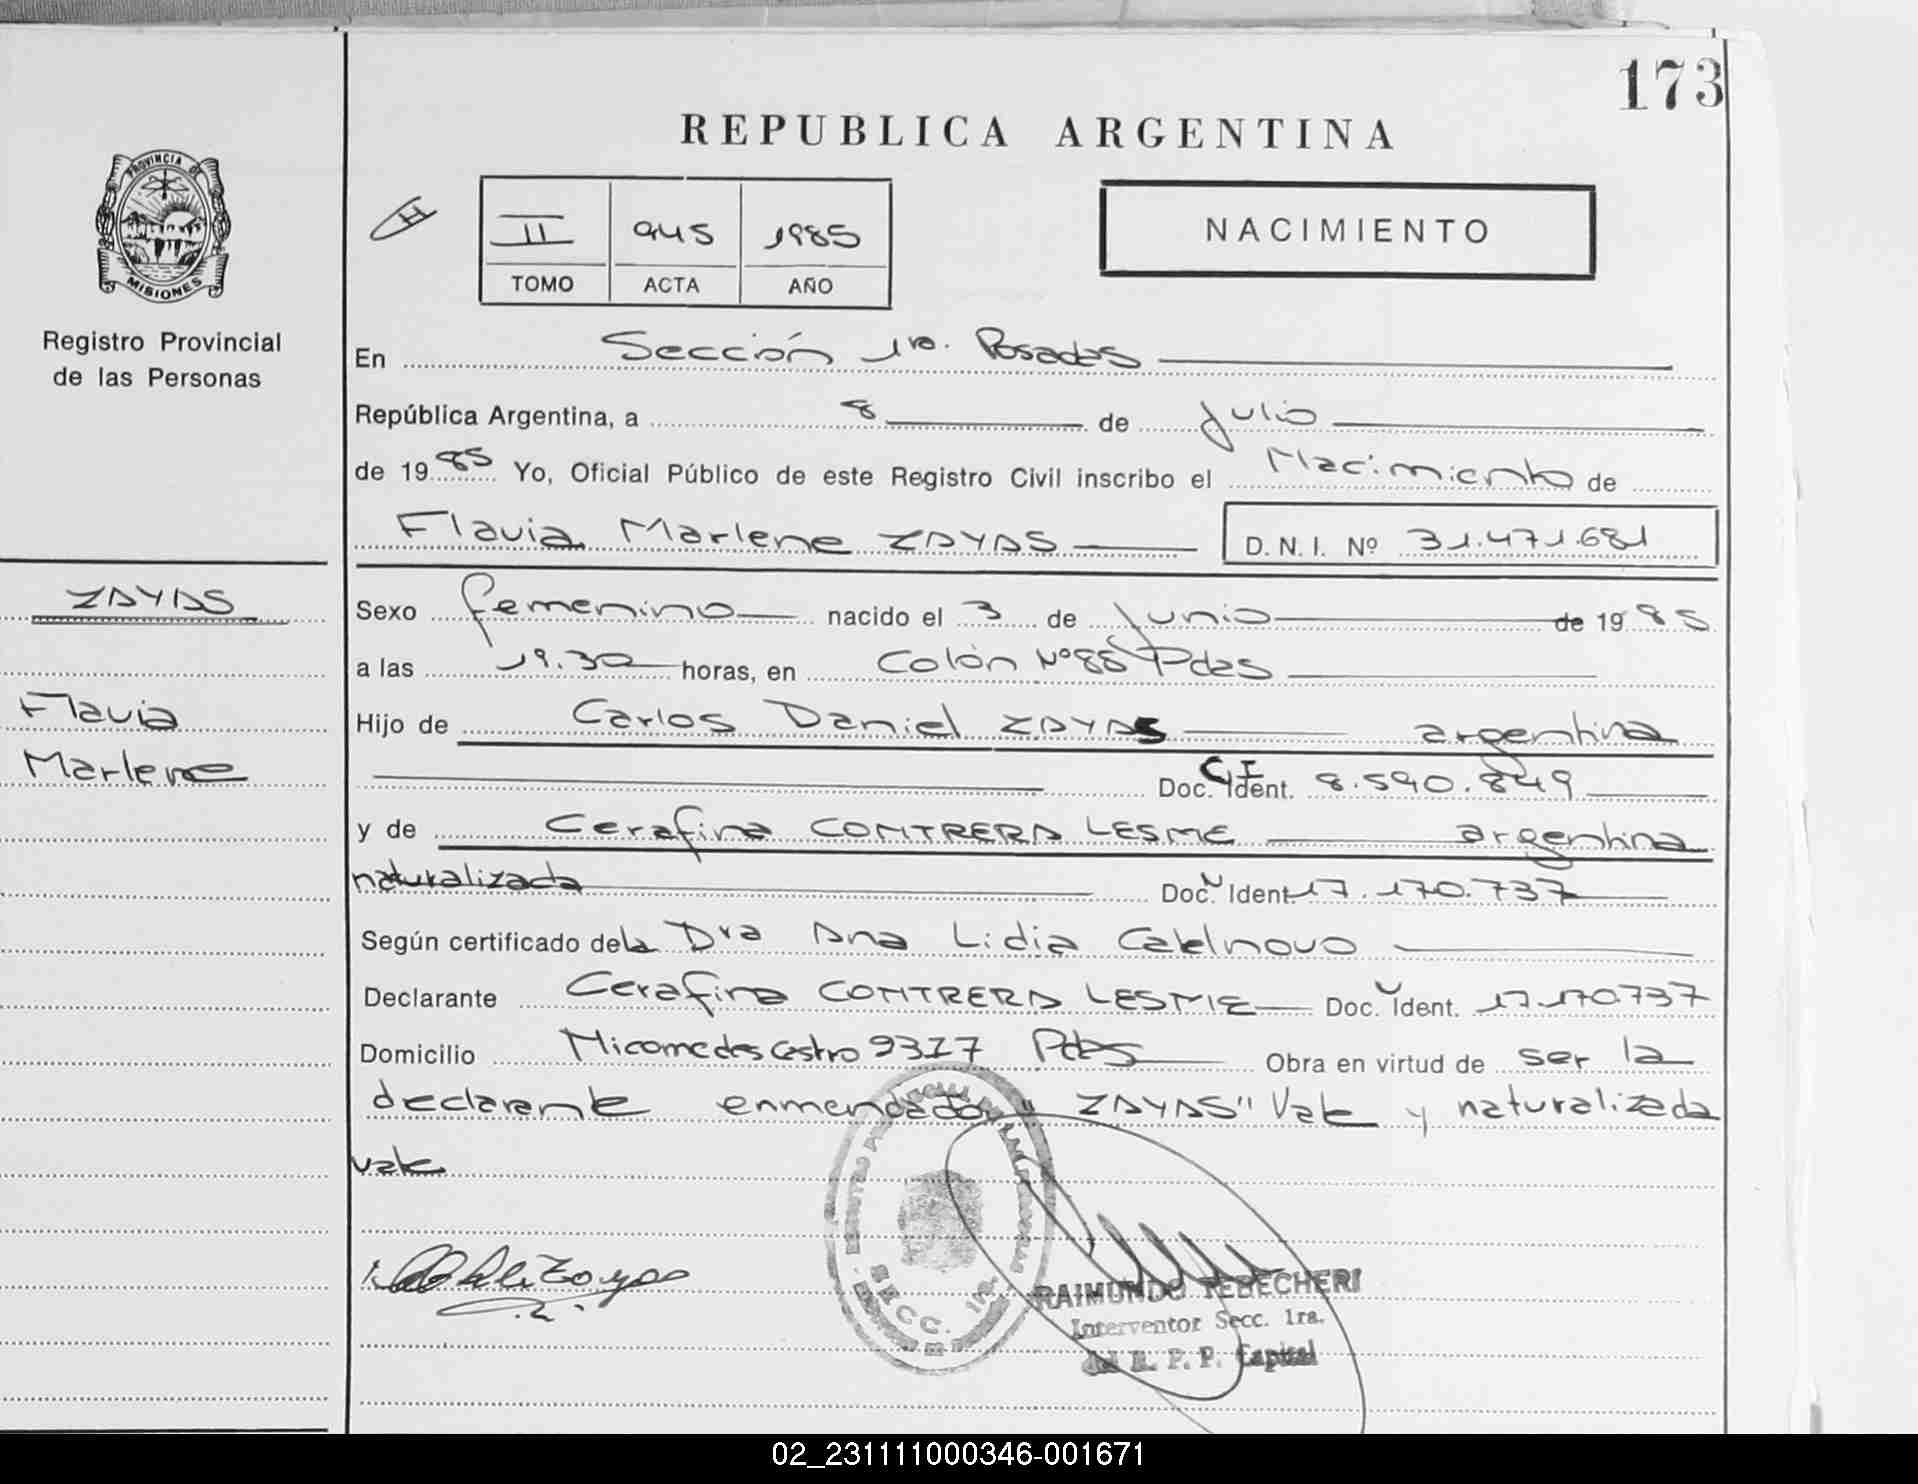 173
REPUBLICA ARGENTINA
PROVINCIA DE
MISIONES
Registro Provincial
de las Personas
II 945 1985
TOMO ACTA AÑO
NACIMIENTO
En Sección 1ra. Posadas
República Argentina, a 8 de Julio
de 1985 Yo, Oficial Público de este Registro Civil inscribo el Nacimiento de
Flavia Marlene ZAYAS D. N. I. Nº 31.471.681
ZAYAS
Flavia
Marlene
Sexo femenino nacido el 3 de Junio de 1985
a las 19.30 horas, en Colón Nº 88 Pdas
Hijo de Carlos Daniel ZAYAS argentina
Doc. C.I Ident. 8.590.849
y de Cerafina CONTRERA LESME argentina
naturalizada Doc. N Ident. 17.170.737
Según certificado de la Dra Ana Lidia
Declarante Cerafina CONTRERA LESME Doc. Ident. 17.170.737
Domicilio Nicomedes Castro 9317 Pdas Obra en virtud de ser la
declarante enmendado "ZAYAS" Vale y naturalizada
vale
SECC. 1ra.
RAIMUNDO TEBECHERI
Interventor Secc. 1ra.
del R. P. P. Capital
02_231111000346-001671